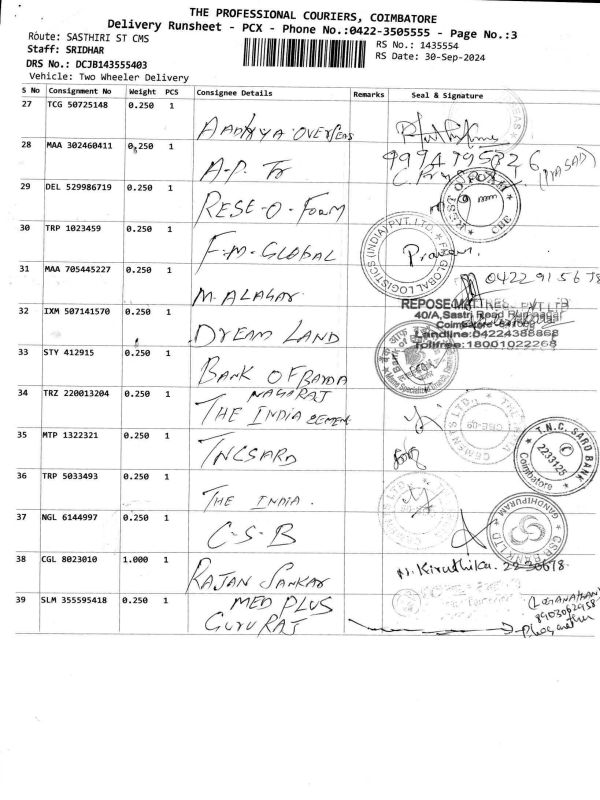 THE PROFESSIONAL COURIERS, COIMBATORE
Delivery Runsheet - PCX - Phone No.:0422-3505555 - Page No.:3
Route: SASTHIRI ST CMS
RS No.: 1435554
Staff: SRIDHAR
RS Date: 30-Sep-2024
DRS No.: DCJB143555403
Vehicle: Two Wheeler Delivery
S No Consignment No Weight PCS Consignee Details Remarks Seal & Signature
27 TCG 50725148 0.250 1 AADHYA OVERSEAS
28 MAA 302460411 0.250 1 A.P. Tr 9994795326 (PRASAD)
29 DEL 529986719 0.250 1 RESE-O-FOAM
30 TRP 1023459 0.250 1 F.M-GLOBAL
31 MAA 705445227 0.250 1 M.ALAGAR
REPOSE MATTRESS PVT LTD
40/A, Sastri Road
Coimbatore
Landline:04224388868
Tollfree:18001022268
32 IXM 507141570 0.250 1 DREAM LAND
33 STY 412915 0.250 1 BANK OF BARODA
34 TRZ 220013204 0.250 1 NAGARAJ
THE INDIA CEMENT
CEMENTS LTD.
35 MTP 1322321 0.250 1 TNCSARD
T.N.C. SARD BANK
2233125
Coimbatore
36 TRP 5033493 0.250 1 THE INDIA.
37 NGL 6144997 0.250 1 C-S-B
CSB BANK LTD GANDHIPURAM
38 CGL 8023010 1.000 1 RAJAN SANKAR
M.Kiruthika.
39 SLM 355595418 0.250 1 MED PLUS
GURURAJ
(LOGANATHAN)
8903062958